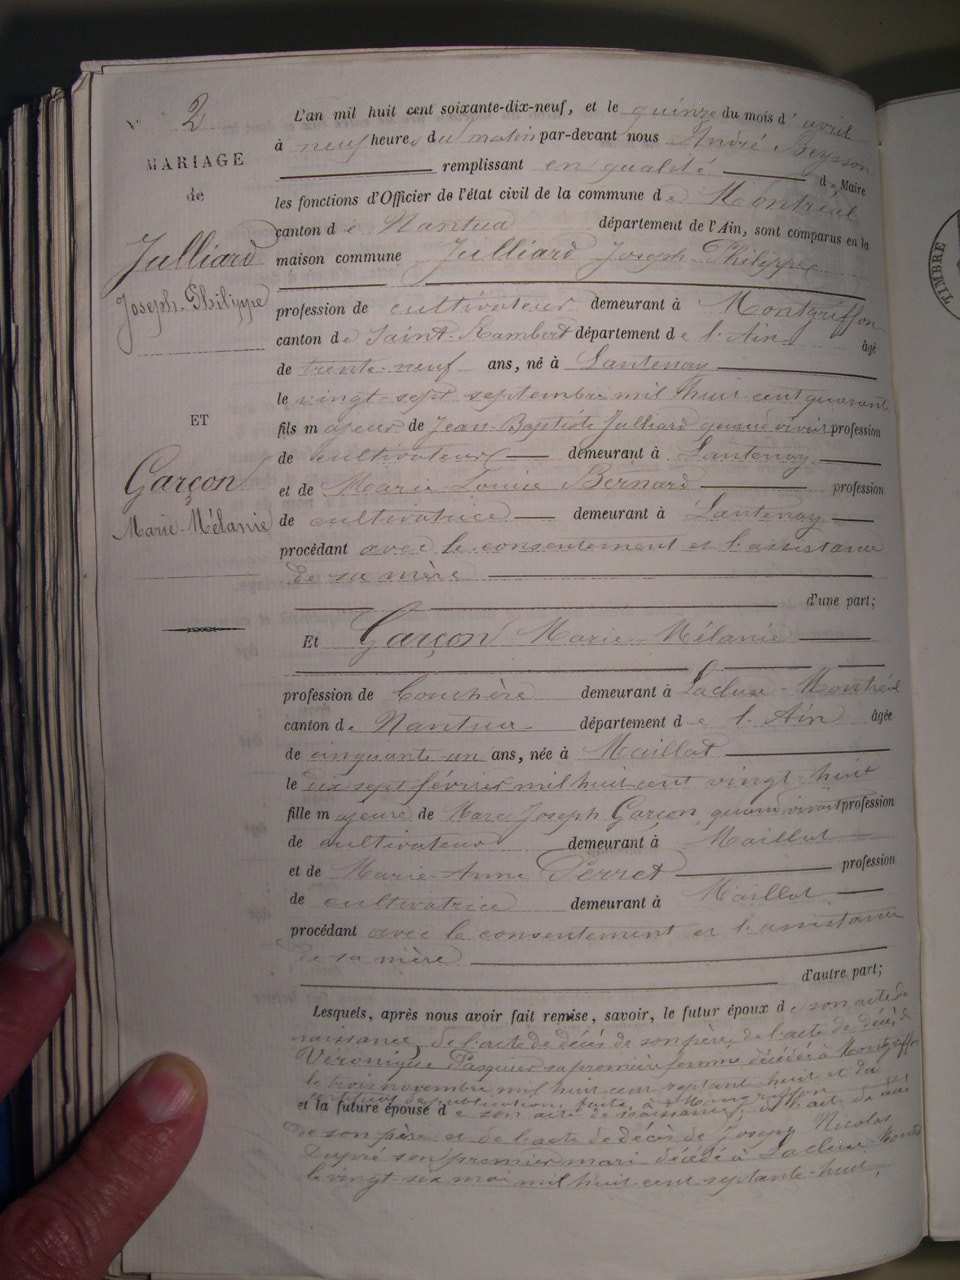 N° 2
MARIAGE
de
Julliard
Joseph-Philippe
ET
Garçon
Marie-Mélanie
L'an mil huit cent soixante-dix-neuf, et le quinze du mois d'avril
à neuf heures du matin par-devant nous André Beysson
remplissant en qualité de Maire
les fonctions d'Officier de l'état civil de la commune de Montréal
canton de Nantua département de l'Ain, sont comparus en la
maison commune Julliard Joseph-Philippe
profession de cultivateur demeurant à Montgriffon
canton de Saint-Rambert département de l'Ain âgé
de trente-neuf ans, né à Lantenay
le vingt-sept septembre mil huit cent quarante
fils majeur de Jean-Baptiste Julliard quand vivait profession
de cultivateur demeurant à Lantenay
et de Marie Louise Bernard profession
de cultivatrice demeurant à Lantenay
procédant avec le consentement et l'assistance
de sa mère
d'une part;
Et Garçon Marie-Mélanie
profession de demeurant à Lacluse-Montréal
canton de Nantua département de l'Ain âgée
de cinquante un ans, née à Maillat
le dix sept février mil huit cent vingt-huit
fille majeure de Marc Joseph Garçon quand vivait profession
de cultivateur demeurant à Maillat
et de Marie-Anne Perret profession
de cultivatrice demeurant à Maillat
procédant avec le consentement et l'assistance
de sa mère
d'autre part;
Lesquels, après nous avoir fait remise, savoir, le futur époux de son acte de
naissance, de l'acte de décès de son père, de l'acte de décès de
Véronique Pasquier sa première femme décédée à Montgriffon
le trois novembre mil huit cent septante huit et du
certificat de publication faite à Montgriffon
et la future épouse de son acte de naissance, et l'acte de
de son père et de l'acte de décès de Joseph Nicolas
Dupré son premier mari décédé à Lacluse
le vingt-six mai mil huit cent septante-huit,
TIMBRE